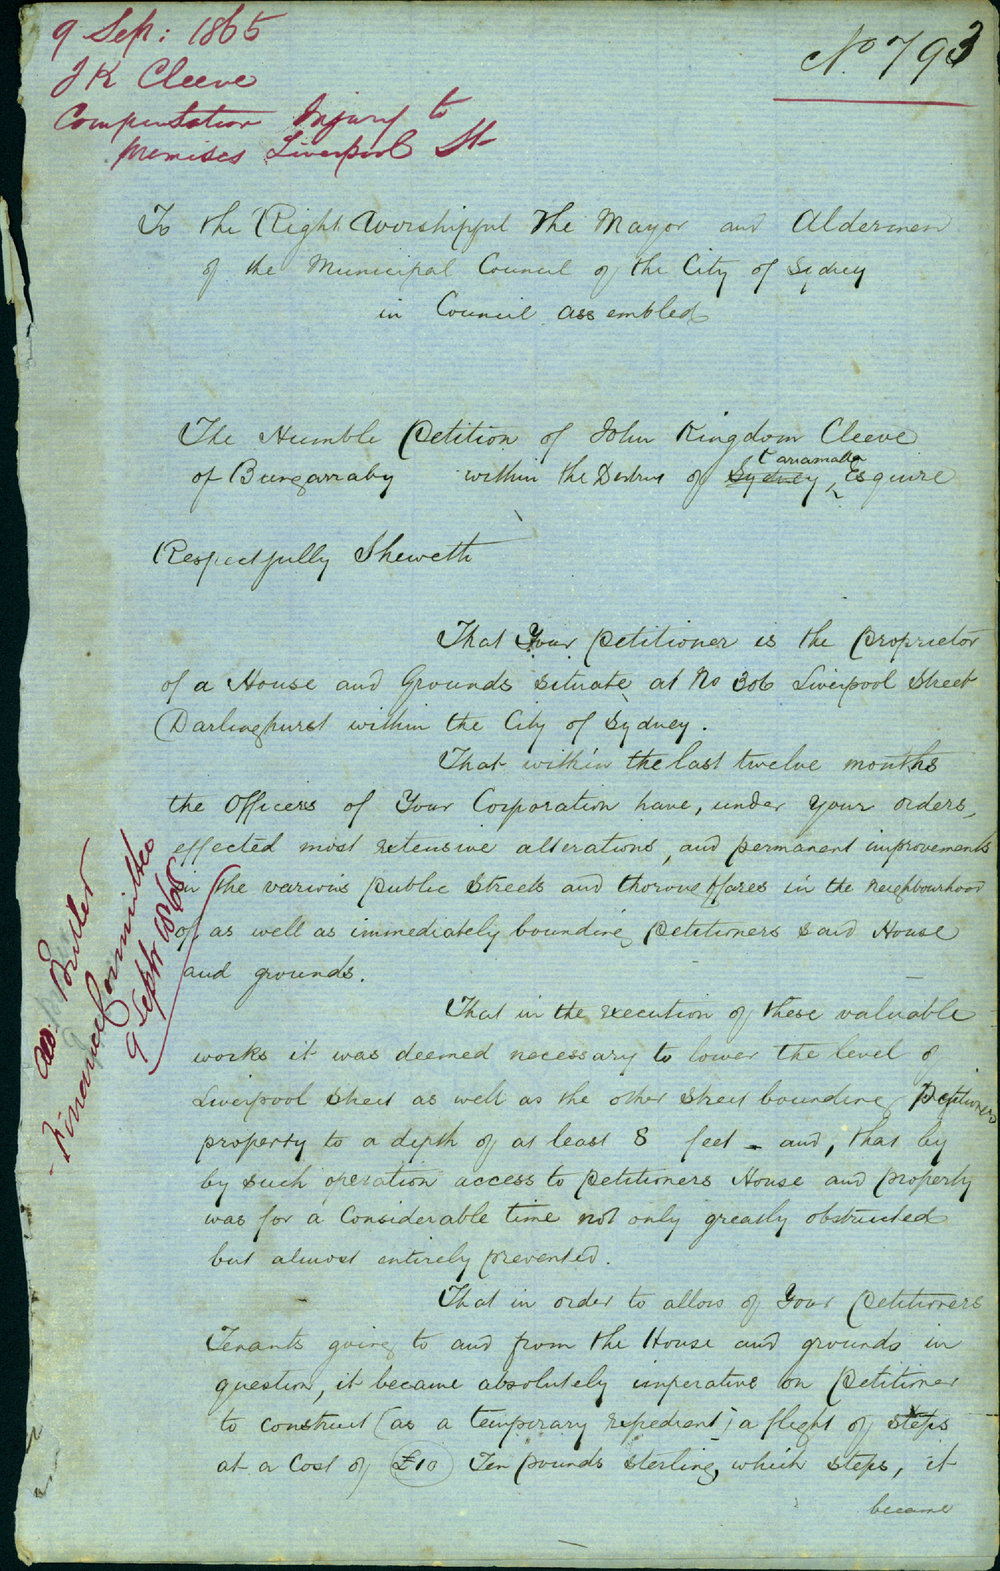 9 Sep: 1865
J K Cleeve
Compensation Injury to
premises Liverpool St
No 793
To the Right Worshipful The Mayor and Aldermen
of the Municipal Council of the City of Sydney
in Council assembled
The Humble Petition of John Kingdom Cleeve
of Bungarraby within the District of Sydney, Esquire
Respectfully Sheweth
That Your Petitioner is the proprietor
of a House and Grounds situate at No 306 Liverpool Street
Darlinghurst within the City of Sydney.
That within the last twelve months
the Officers of Your Corporation have, under Your orders,
effected most extensive alterations, and permanent improvements
in the various public Streets and thoroughfares in the neighbourhood
of, as well as immediately bounding petitioners said House
and grounds.
That in the execution of these valuable
works it was deemed necessary to lower the level of
Liverpool Street as well as the other Street bounding Petitioners
property to a depth of at least 8 feet - and, that by
by such operation access to petitioners House and property
was for a Considerable time not only greatly obstructed
but almost entirely prevented.
That in order to allow of Your Petitioners
Tenants going to and from the House and grounds in
question, it became absolutely imperative on Petitioner
to construct (as a temporary expedient) a flight of steps
at a Cost of £10 Ten pounds sterling, which steps, it
became
Finance Committee
9 Septr 1865